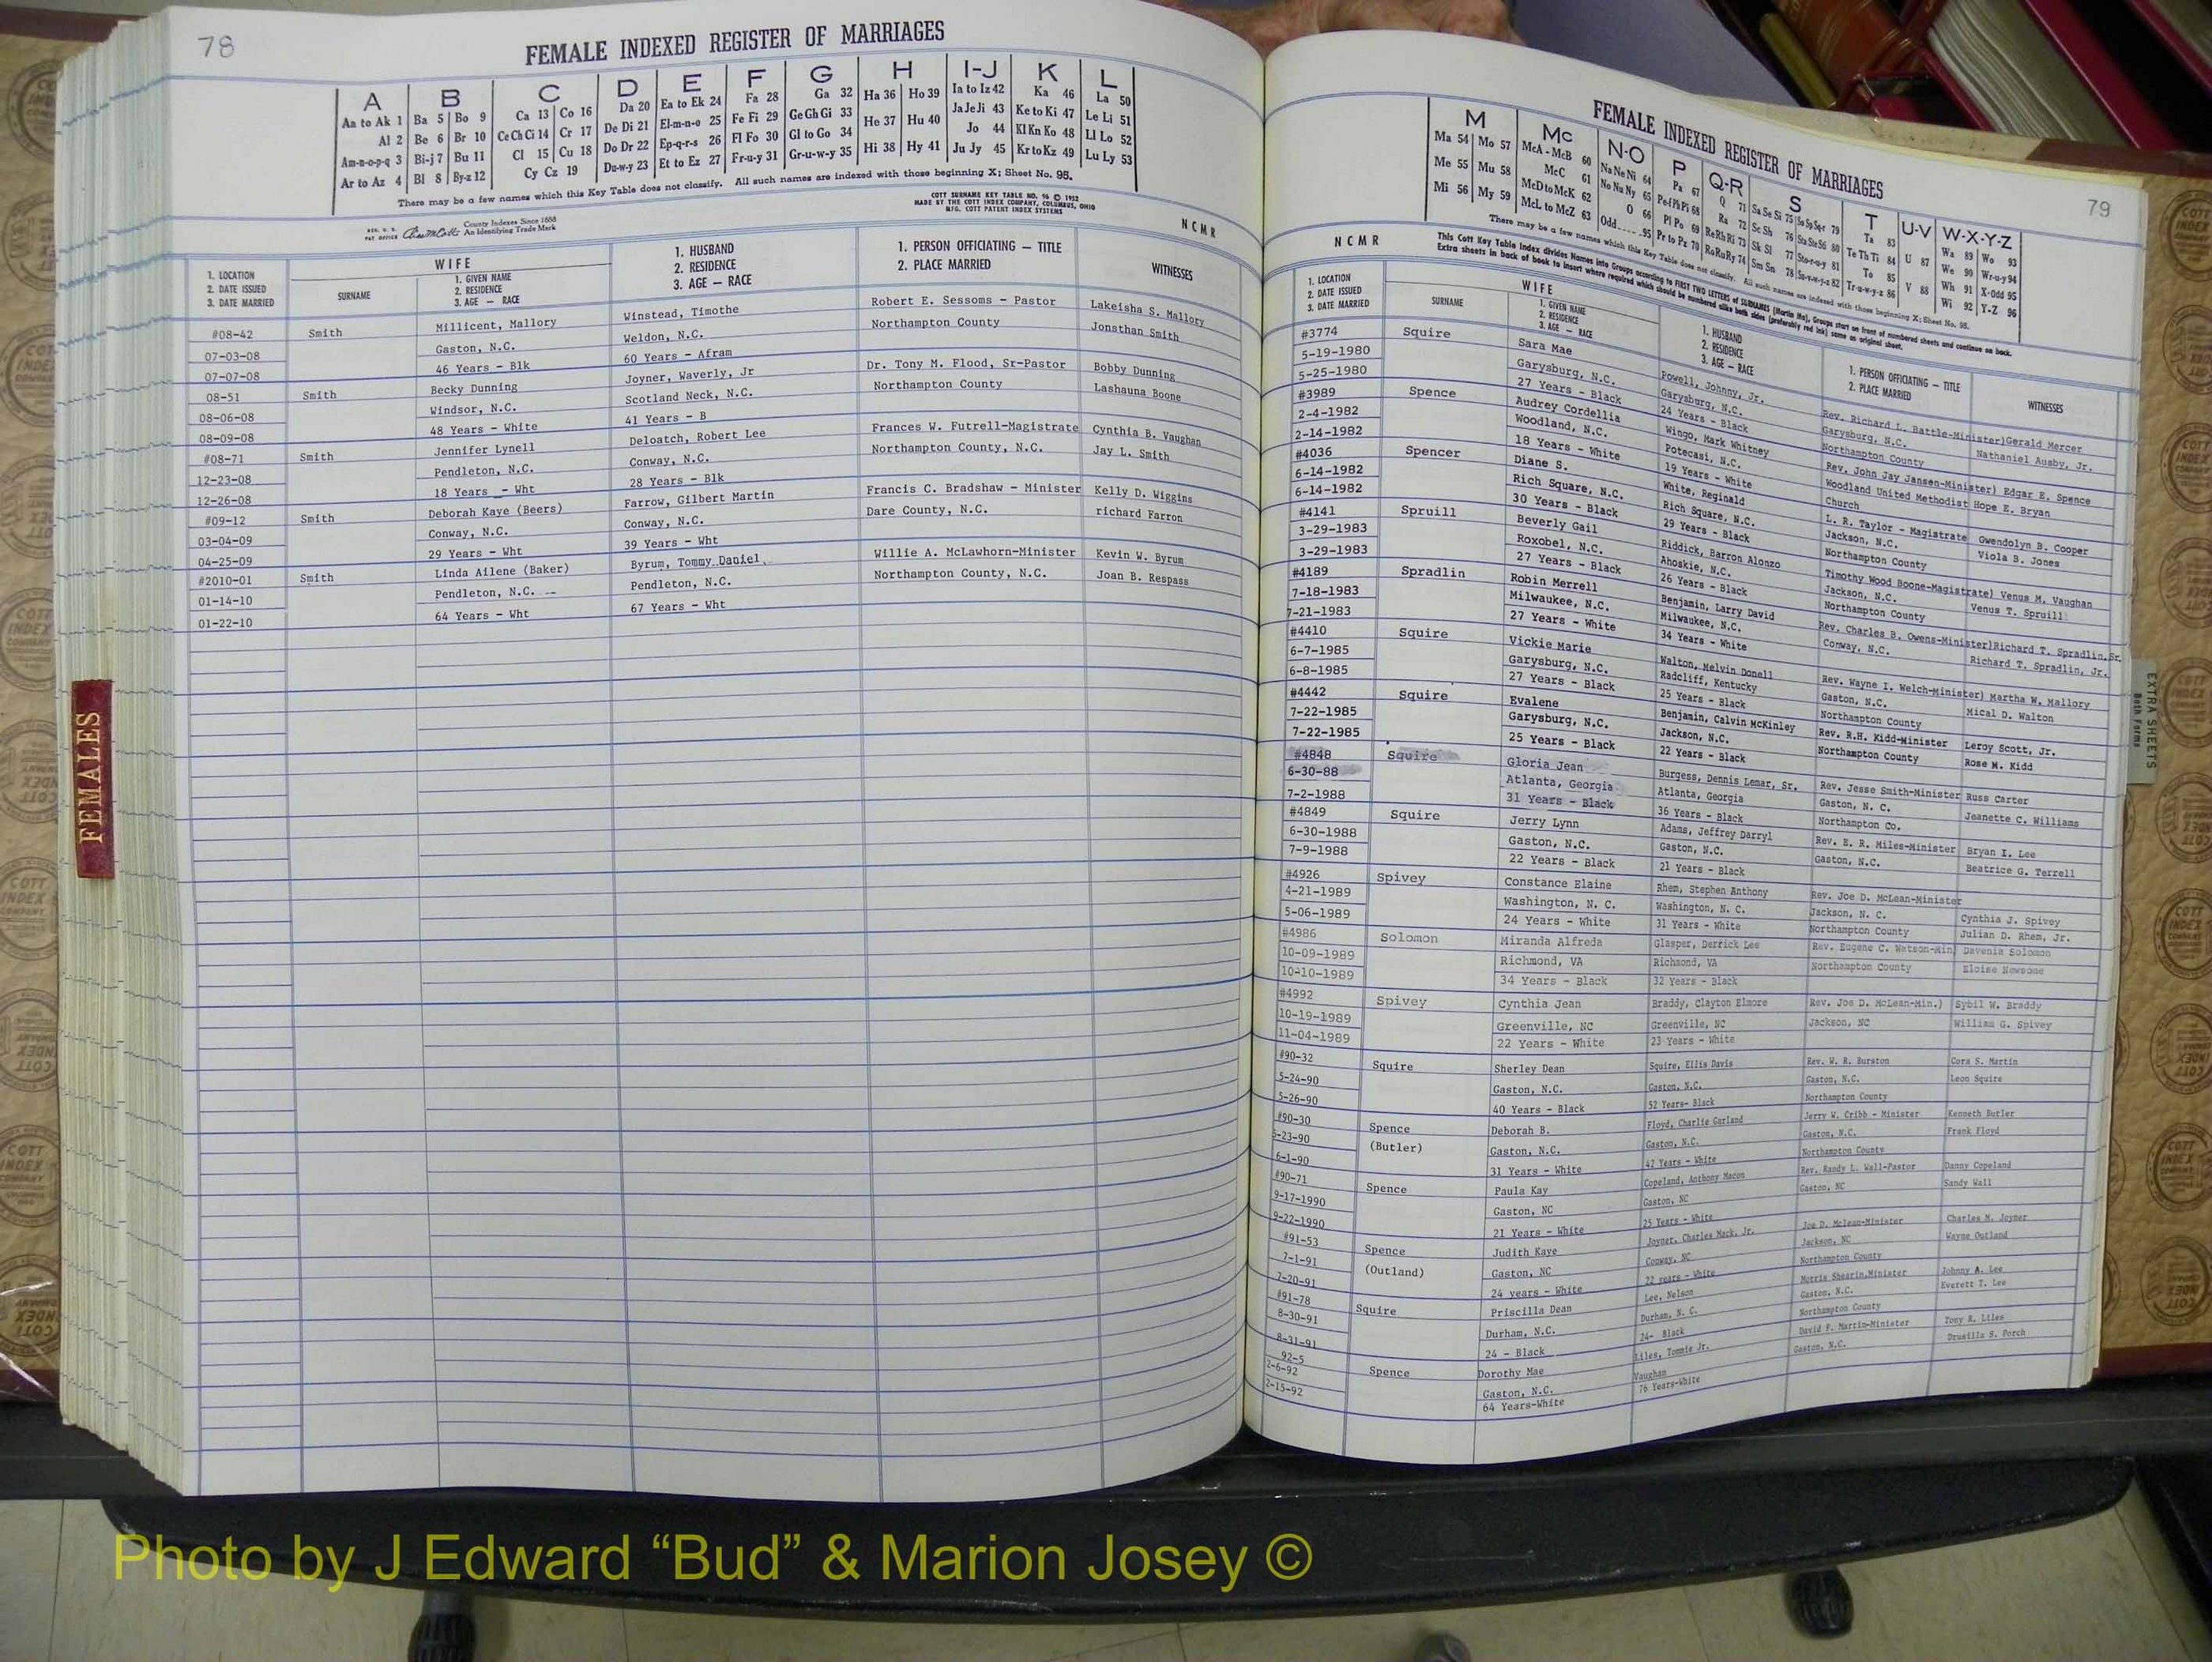 78
FEMALE INDEXED REGISTER OF MARRIAGES
A B C D E F G H I-J K L
Aa to Ak 1 Ba 5 Bo 9 Ca 13 Co 16 Da 20 Ea to Ek 24 Fa 28 Ga 32 Ha 36 Ho 39 Ia to Iz 42 Ka 46 La 50
Al 2 Be 6 Br 10 Ce Ch Ci 14 Cr 17 De Di 21 El-m-n-o 25 Fe Fi 29 Ge Gh Gi 33 He 37 Hu 40 Ja Je Ji 43 Ke to Ki 47 Le Li 51
Am-n-o-p-q 3 Bi-j 7 Bu 11 Cl 15 Cu 18 Do Dr 22 Ep-q-r-s 26 Fl Fo 30 Gl to Go 34 Hi 38 Hy 41 Jo 44 Kl Kn Ko 48 Ll Lo 52
Ar to Az 4 Bl 8 By-z 12 Cy Cz 19 Du-w-y 23 Et to Ez 27 Fr-u-y 31 Gr-u-w-y 35 Ju Jy 45 Kr to Kz 49 Lu Ly 53
There may be a few names which this Key Table does not classify. All such names are indexed with those beginning X; Sheet No. 95.
County Indexes Since 1888
An Identifying Trade Mark
COTT SURNAME KEY TABLE NO. 96 © 1952
MADE BY THE COTT INDEX COMPANY, COLUMBUS, OHIO
MFG. COTT PATENT INDEX SYSTEMS
NCMR
1. LOCATION
2. DATE ISSUED
3. DATE MARRIED
WIFE
SURNAME
1. GIVEN NAME
2. RESIDENCE
3. AGE — RACE
1. HUSBAND
2. RESIDENCE
3. AGE — RACE
1. PERSON OFFICIATING — TITLE
2. PLACE MARRIED
WITNESSES
#08-42 Smith Millicent, Mallory Winstead, Timothe Robert E. Sessoms - Pastor Lakeisha S. Mallory
07-03-08 Gaston, N.C. Weldon, N.C. Northampton County Jonsthan Smith
07-07-08 46 Years - Blk 60 Years - Afram
08-51 Smith Becky Dunning Joyner, Waverly, Jr Dr. Tony M. Flood, Sr-Pastor Bobby Dunning
08-06-08 Windsor, N.C. Scotland Neck, N.C. Northampton County Lashauna Boone
08-09-08 48 Years - White 41 Years - B
#08-71 Smith Jennifer Lynell Deloatch, Robert Lee Frances W. Futrell-Magistrate Cynthia B. Vaughan
12-23-08 Pendleton, N.C. Conway, N.C. Northampton County, N.C. Jay L. Smith
12-26-08 18 Years - Wht 28 Years - Blk
#09-12 Smith Deborah Kaye (Beers) Farrow, Gilbert Martin Francis C. Bradshaw - Minister Kelly D. Wiggins
03-04-09 Conway, N.C. Conway, N.C. Dare County, N.C. richard Farron
04-25-09 29 Years - Wht 39 Years - Wht
#2010-01 Smith Linda Ailene (Baker) Byrum, Tommy Daniel Willie A. McLawhorn-Minister Kevin W. Byrum
01-14-10 Pendleton, N.C. Pendleton, N.C. Northampton County, N.C. Joan B. Respass
01-22-10 64 Years - Wht 67 Years - Wht
FEMALES
79
FEMALE INDEXED REGISTER OF MARRIAGES
M Mc N-O P Q-R S T U-V W-X-Y-Z
Ma 54 Mo 57 McA - McB 60 Na Ne Ni 64 Pa 67 Q 71 Sa Se Si 75 79 Ta 83 U 87 Wa 89 Wo 93
Me 55 Mu 58 McC 61 No Nu Ny 65 Pe Ph Pi 68 Ra 72 Sc Sh 76 Sta Ste Sti 80 Te Th Ti 84 V 88 We 90 Wr-u-y 94
Mi 56 My 59 McD to McK 62 O 66 Pl Po 69 Re Rh Ri 73 Sk Sl 77 Sto-r-u-y 81 To 85 Wh 91 X-Odd 95
McL to McZ 63 Odd 95 Pr to Pz 70 Ro Ru Ry 74 Sm Sn 78 Su-v-w-y-z 82 Tr-u-w-y-z 86 Wi 92 Y-Z 96
There may be a few names which this Key Table does not classify. All such names are indexed with those beginning X; Sheet No. 95.
This Cott Key Table Index divides Names into Groups according to FIRST TWO LETTERS of SURNAMES (Martin Ma), Groups start on front of numbered sheets and continue on back.
Extra sheets in back of book to insert where required which should be numbered alike both sides (preferably red ink) same as original sheet.
NCMR
1. LOCATION
2. DATE ISSUED
3. DATE MARRIED
WIFE
SURNAME
1. GIVEN NAME
2. RESIDENCE
3. AGE — RACE
1. HUSBAND
2. RESIDENCE
3. AGE — RACE
1. PERSON OFFICIATING — TITLE
2. PLACE MARRIED
WITNESSES
#3774 Squire Sara Mae Powell, Johnny, Jr. Rev. Richard L. Battle-Minister)Gerald Mercer
5-19-1980 Garysburg, N.C. Garysburg, N.C. Garysburg, N.C. Nathaniel Ausby, Jr.
5-25-1980 27 Years - Black 24 Years - Black Northampton County
#3989 Spence Audrey Cordellia Wingo, Mark Whitney Rev. John Jay Jansen-Minister) Edgar E. Spence
2-4-1982 Woodland, N.C. Potecasi, N.C. Woodland United Methodist Hope E. Bryan
2-14-1982 18 Years - White 19 Years - White Church
#4036 Spencer Diane S. White, Reginald L. R. Taylor - Magistrate Gwendolyn B. Cooper
6-14-1982 Rich Square, N.C. Rich Square, N.C. Jackson, N.C. Viola B. Jones
6-14-1982 30 Years - Black 29 Years - Black Northampton County
#4141 Spruill Beverly Gail Riddick, Barron Alonzo Timothy Wood Boone-Magistrate) Venus M. Vaughan
3-29-1983 Roxobel, N.C. Ahoskie, N.C. Jackson, N.C. Venus T. Spruill
3-29-1983 27 Years - Black 26 Years - Black Northampton County
#4189 Spradlin Robin Merrell Benjamin, Larry David Rev. Charles B. Owens-Minister)Richard T. Spradlin,Sr.
7-18-1983 Milwaukee, N.C. Milwaukee, N.C. Conway, N.C. Richard T. Spradlin, Jr.
7-21-1983 27 Years - White 34 Years - White
#4410 Squire Vickie Marie Walton, Melvin Donell Rev. Wayne I. Welch-Minister) Martha W. Mallory
6-7-1985 Garysburg, N.C. Radcliff, Kentucky Gaston, N.C. Mical D. Walton
6-8-1985 27 Years - Black 25 Years - Black Northampton County
#4442 Squire Evalene Benjamin, Calvin McKinley Rev. R.H. Kidd-Minister Leroy Scott, Jr.
7-22-1985 Garysburg, N.C. Jackson, N.C. Northampton County Rose M. Kidd
7-22-1985 25 Years - Black 22 Years - Black
#4848 Squire Gloria Jean Burgess, Dennis Lemar, Sr. Rev. Jesse Smith-Minister Russ Carter
6-30-88 Atlanta, Georgia Atlanta, Georgia Gaston, N. C. Jeanette C. Williams
7-2-1988 31 Years - Black 36 Years - Black Northampton Co.
#4849 Squire Jerry Lynn Adams, Jeffrey Darryl Rev. E. R. Miles-Minister Bryan I. Lee
6-30-1988 Gaston, N.C. Gaston, N.C. Gaston, N.C. Beatrice G. Terrell
7-9-1988 22 Years - Black 21 Years - Black
#4926 Spivey Constance Elaine Rhem, Stephen Anthony Rev. Joe D. McLean-Minister
4-21-1989 Washington, N. C. Washington, N. C. Jackson, N. C. Cynthia J. Spivey
5-06-1989 24 Years - White 31 Years - White Northampton County Julian D. Rhem, Jr.
#4986 Solomon Miranda Alfreda Glasper, Derrick Lee Rev. Eugene C. Watson-Min) Davenia Solomon
10-09-1989 Richmond, VA Richmond, VA Northampton County Eloise Newsome
10-10-1989 34 Years - Black 32 Years - Black
#4992 Spivey Cynthia Jean Braddy, Clayton Elmore Rev. Joe D. McLean-Min.) Sybil W. Braddy
10-19-1989 Greenville, NC Greenville, NC Jackson, NC William G. Spivey
11-04-1989 22 Years - White 23 Years - White
#90-32 Squire Sherley Dean Squire, Ellis Davis Rev. W. R. Burston Cora S. Martin
5-24-90 Gaston, N.C. Gaston, N.C. Gaston, N.C. Leon Squire
5-26-90 40 Years - Black 52 Years- Black Northampton County
#90-30 Spence Deborah B. Floyd, Charlie Garland Jerry W. Cribb - Minister Kenneth Butler
5-23-90 (Butler) Gaston, N.C. Gaston, N.C. Gaston, N.C. Frank Floyd
6-1-90 31 Years - White 47 Years - White Northampton County
#90-71 Spence Paula Kay Copeland, Anthony Macon Rev. Randy L. Wall-Pastor Danny Copeland
9-17-1990 Gaston, NC Gaston, NC Gaston, NC Sandy Wall
9-22-1990 21 Years - White 25 Years - White
#91-53 Spence Judith Kaye Joyner, Charles Mack, Jr. Joe D. Mclean-Minister Charles M. Joyner
7-1-91 (Outland) Gaston, NC Conway, NC Jackson, NC Wayne Outland
7-20-91 24 years - White 22 years - White Northampton County
#91-78 Squire Priscilla Dean Lee, Nelson Morris Shearin,Minister Johnny A. Lee
8-30-91 Durham, N.C. Durham, N. C. Gaston, N.C. Everett T. Lee
8-31-91 24 - Black 24- Black Northampton County
92-5 Spence Dorothy Mae Liles, Tommie Jr. David F. Martin-Minister Tony R. Liles
2-6-92 Gaston, N.C. Vaughan Gaston, N.C. Drusilla S. Porch
2-15-92 64 Years-White 76 Years-White
EXTRA SHEETS
Both Forms
Photo by J Edward “Bud” & Marion Josey ©